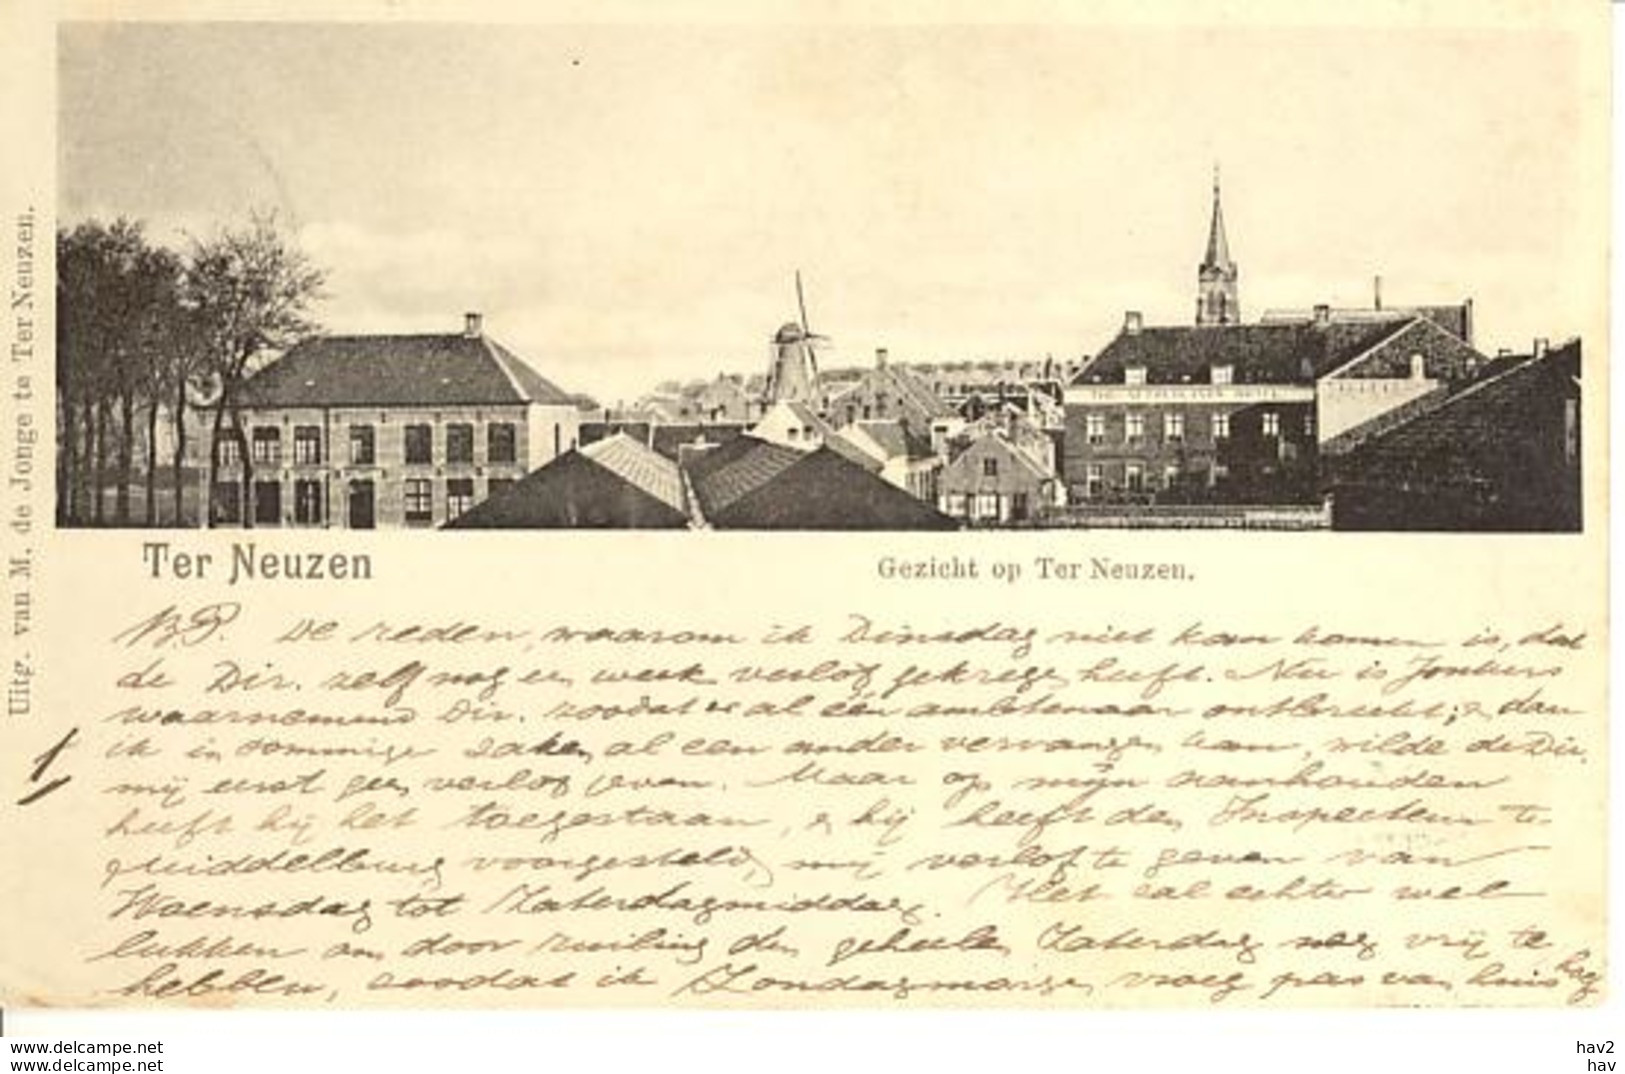 Uitg. van M. de Jonge te Ter Neuzen.
Ter Neuzen
Gezicht op Ter Neuzen.
B.P. De reden, waarom ik Dinsdag niet kan komen is, dat
de Dir. zelf nog een week verlof gekregen heeft. Nu is Jonkers
waarnemend Dir. zoodat er al één ambtenaar ontbreekt; en daar
ik in sommige zaken al een ander vervangen kan, wilde de Dir.
mij eerst geen verlof geven. Maar op mijn aanhouden
heeft hij het toegestaan, & hij heeft den Inspecteur te
Middelburg voorgesteld, mij verlof te geven van
Woensdag tot Zaterdagmiddag. Het zal echter wel
lukken om door ruiling den geheelen Zaterdag nog vrij te
hebben, zoodat ik Zondagmorgen vroeg pas van huis hoef
www.delcampe.net
www.delcampe.net
hav2
hav